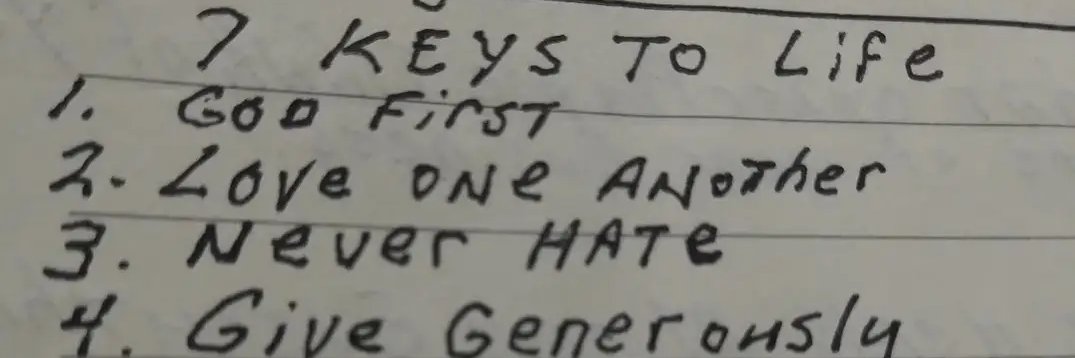 7 KEYS TO Life
1. GOD FirST
2. Love ONe ANoTher
3. Never HATe
4. Give Generously